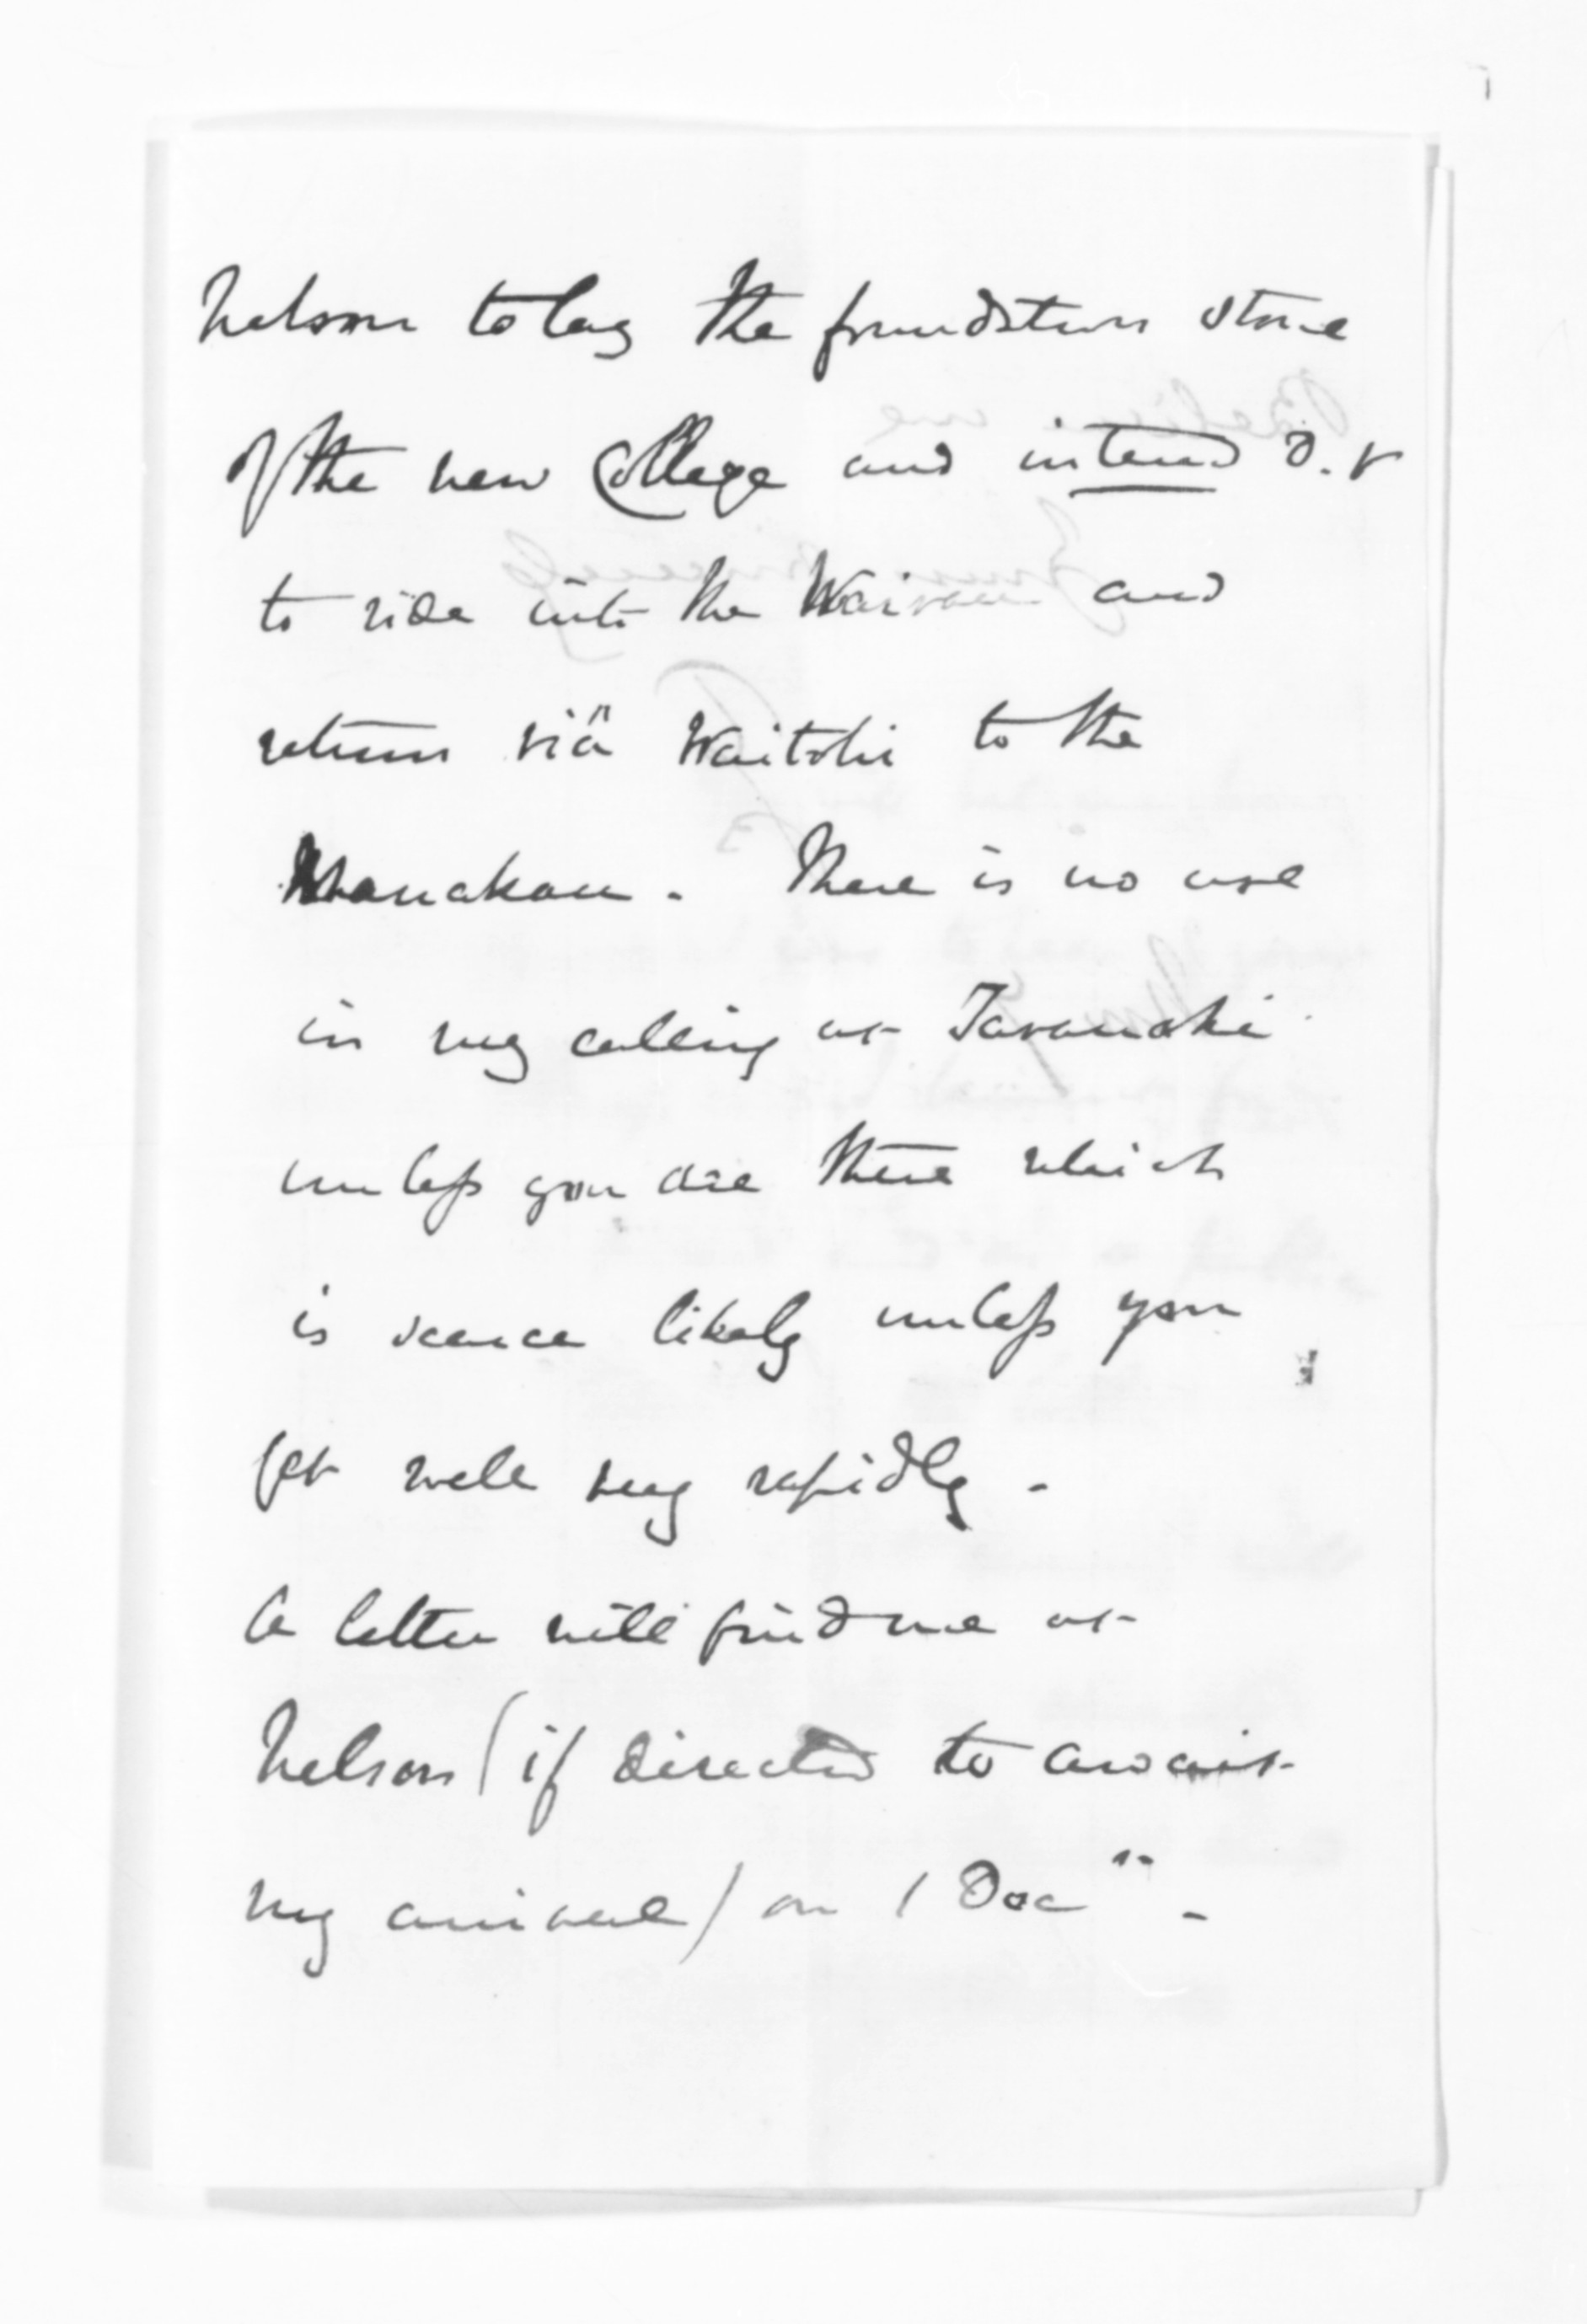 Nelson to lay the foundation stone
of the new College and intend D.V
to ride into the Wairau and
return viâ Waitohi to the
Manakau. There is no use
in my calling at Taranaki
unless you are there which
is scarce likely unless you
get well very rapidly.
A letter will find me at
Nelson (if directed to await
my arrival) on 1 Dec